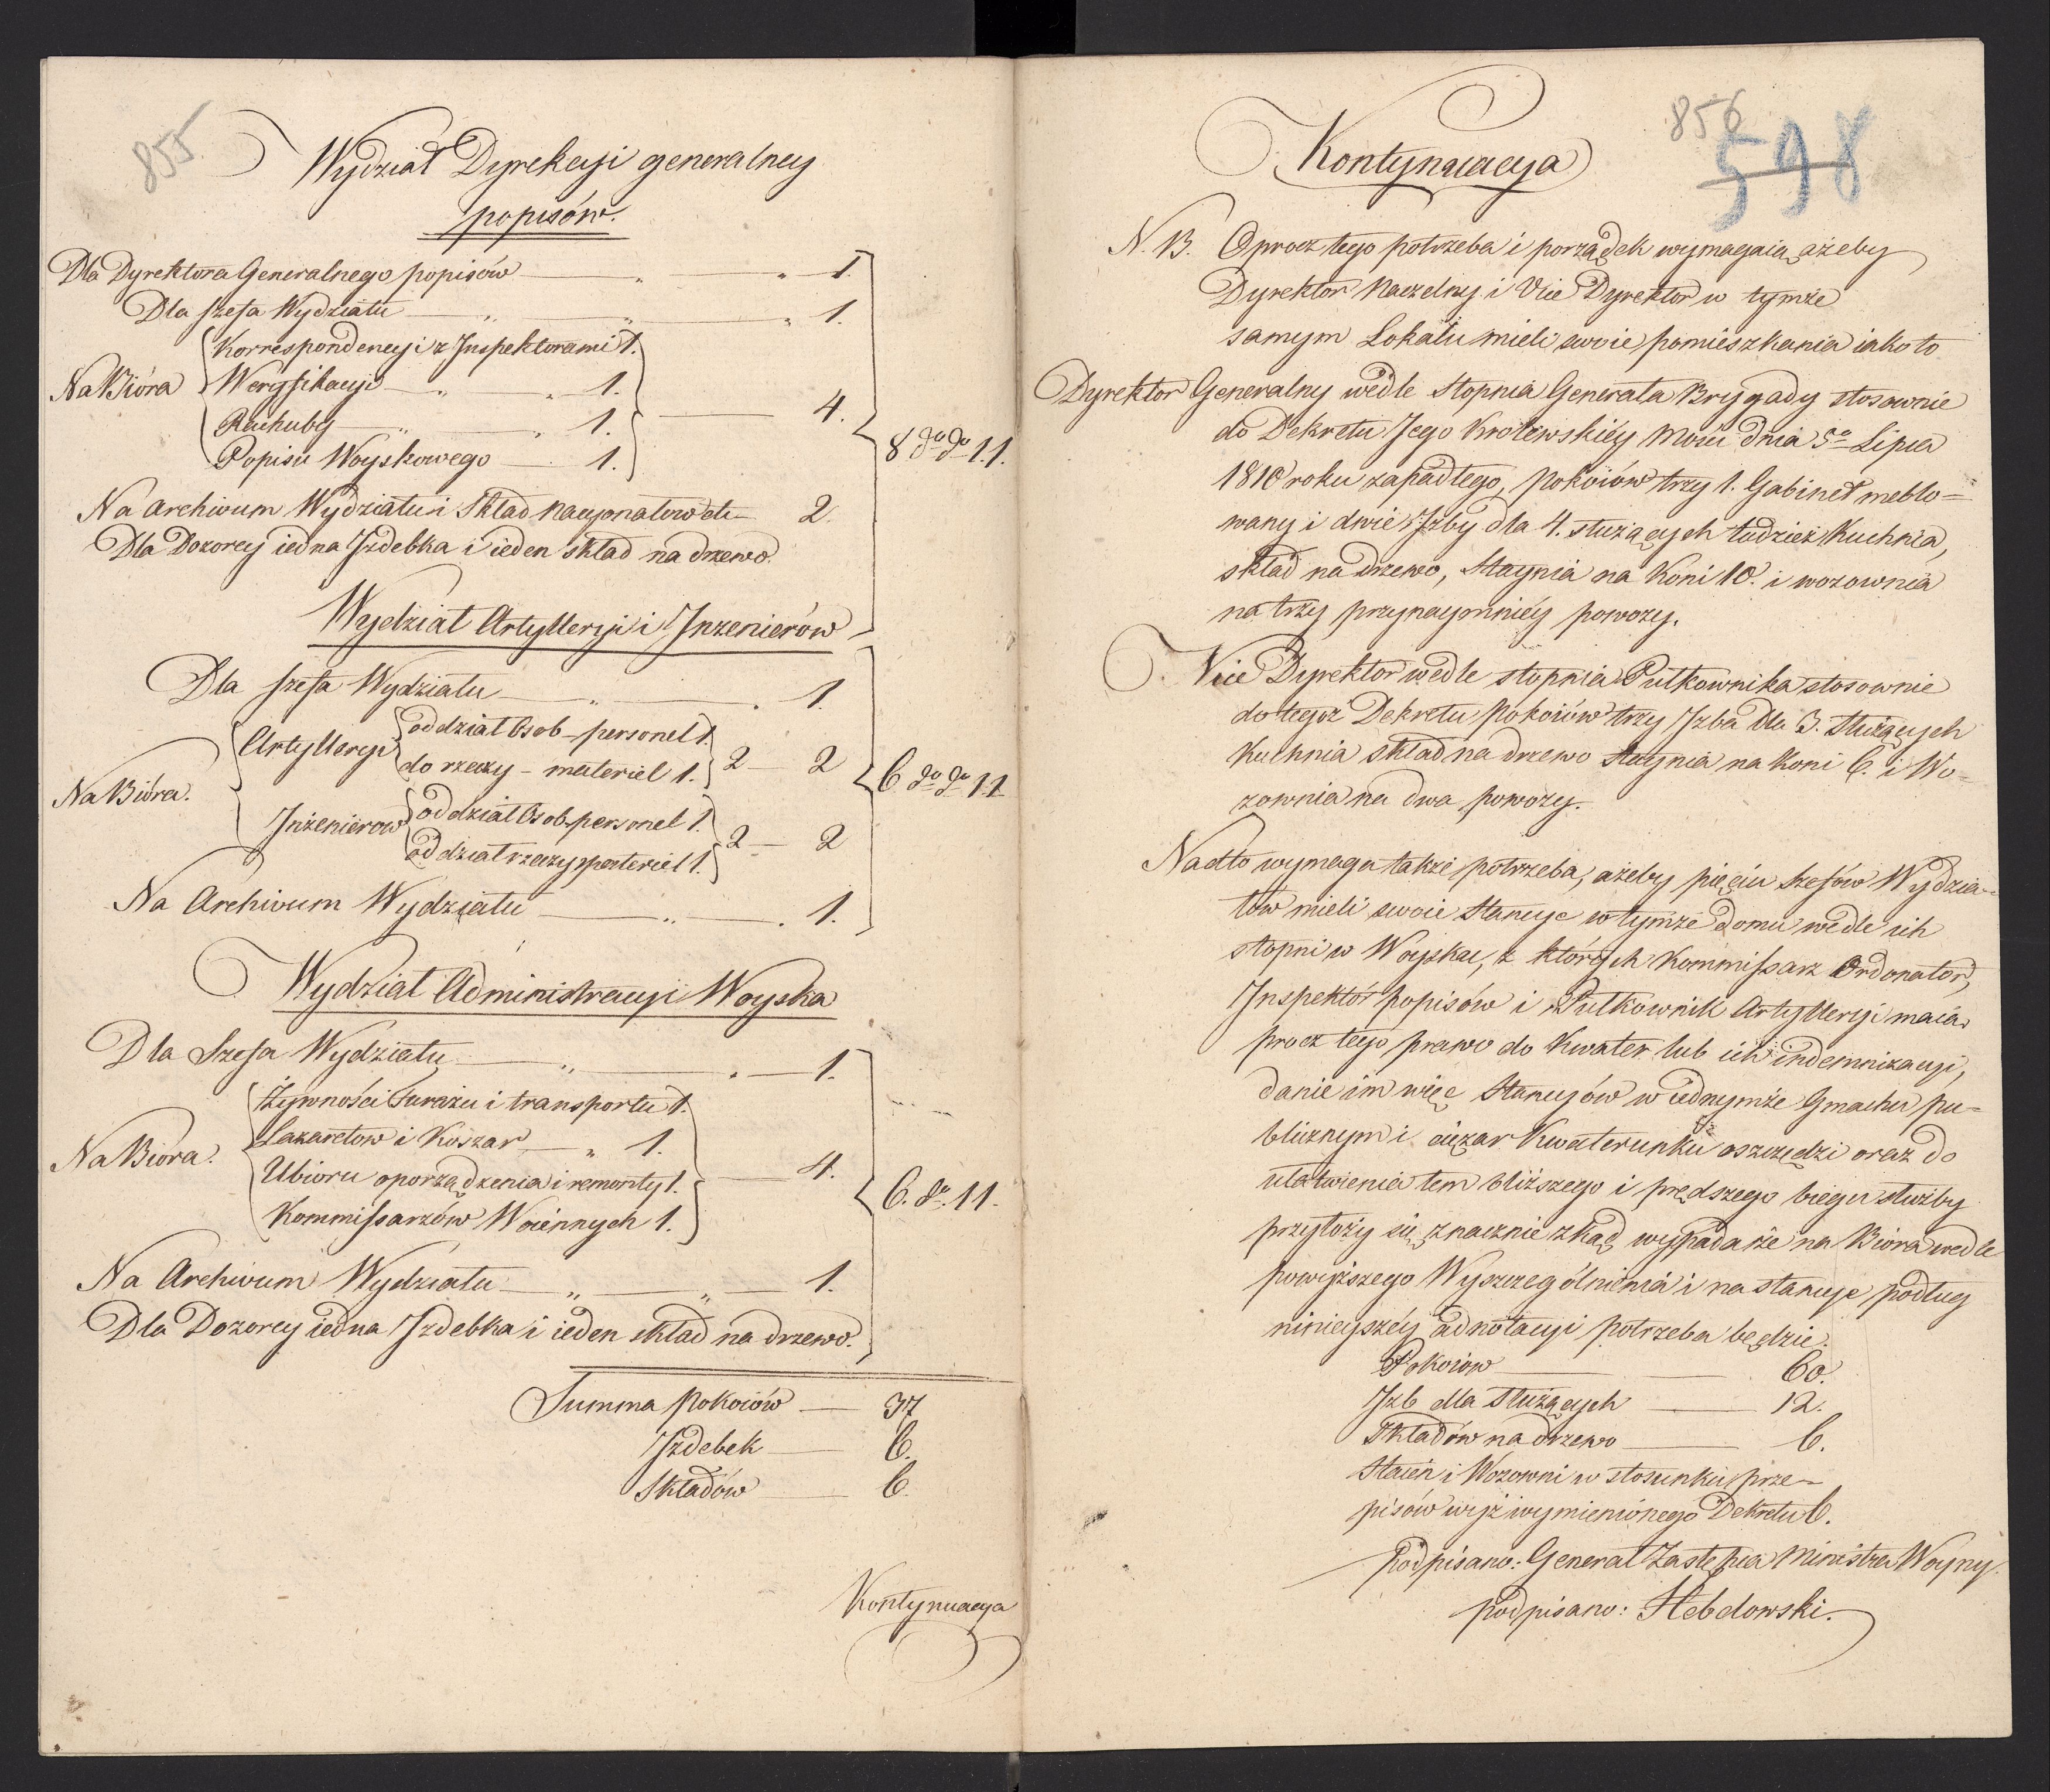 855
Wydział Dyrekcyi generalney
popisów.
Dla Dyrektora Generalnego popisów — „ „ — 1.
Dla szefa Wydziału — „ — „ — „ 1.
Korrespondencyi z Inspektorami 1.
Na Bióra Weryfikacyi — „ „ — 1.
Rachuby — „ — „ 1. — 4.
Popisu Woyskowego — 1.
8 do do 1.1.
Na Archivum Wydziału i Skład Nacyonałow etc — 2.
Dla Dozorcy iedna Izdebka i ieden skład na drzewo.
Wydział Artylleryi i Inzenierów
Dla szefa Wydziału — „ — . 1.
Artylleryi oddział Osob – personel 1.
do rzeczy – materiel 1. 2 — 2
Na Bióra.
6 do do 1.1.
Inżenierow oddział Osob – personel 1.
oddział rzeczy materiel 1. 2 — 2
Na Archivum Wydziału — „ — . 1.
Wydział Administracyi Woyska
Dla Szefa Wydziału — „ — „ — 1.
Żywności Furażu i transportu 1.
Lazaretow i Koszar — „ 1.
Na Bióra. Ubioru oporządzenia i remonty 1. — 4.
6. do. 1 1.
Kommissarzów Woiennych 1.
Na Archivum Wydziału — „ — „ — 1.
Dla Dozorcy iedna Izdebka i ieden skład na drzewo.
Summa Pokoiów — 37
Izdebek — 6.
Składów — 6.
Kontynuacya
856
598
Kontynuacya
N. B. Oprocz tego potrzeba i porządek wymagaią ażeby
Dyrektor Naczelny i Vice Dyrektor w tymże
samym Lokalu mieli swoie pomieszkania iako to
Dyrektor Generalny wedle Stopnia Generała Brygady stosownie
do Dekretu Jego Krolewskiéy Mości dnia 5o Lipca
1810 roku zapadłego, Pokoiów trzy 1. Gabinet meblo=
wany i dwie Izby dla 4. służących tudzież Kuchnia,
skład na drzewo, Staynia na Koni 10. i wozownia
na trzy przynaymniéy powozy.
Vice Dyrektor wedle stopnia Pułkownika stosownie
do tegoż Dekretu Pokoiów trzy Izba dla 3. Służących
Kuchnia skład na drzewo Staynia na Koni 6. i Wo=
zownia na dwa powozy.
Nadto wymaga także potrzeba, ażeby pięciu Szefów Wydzia=
łow mieli swoie Stancye w tymże domu wedle ich
stopni w Woysku, z których Kommissarz Ordonator,
Inspektór popisów i Pułkownik Artylleryi maią
procz tego prawo do Kwater lub ich indemnizacyi,
danie im więc Stancyów w iednymże Gmachu pu=
blicznym i ciężar Kwaterunku oszczędzi oraz do
ułatwienia tem bliższego i prędszego biegu służby
przyłoży się znacznie zkąd wypada że na Bióra wedle
powyższego Wyszczególnienia i na stancye podług
ninieyszéy adnotacyi potrzeba będzie.
Pokoiow — — 60.
Izb dla Służących — 12.
Składów na drzewo — 6.
Staień i Wozowni w stosunku prze=
pisów wyż wymienionego Dekretu 6.
Podpisano: Generał Zastępca Ministra Woyny.
podpisano: Hebdowski.